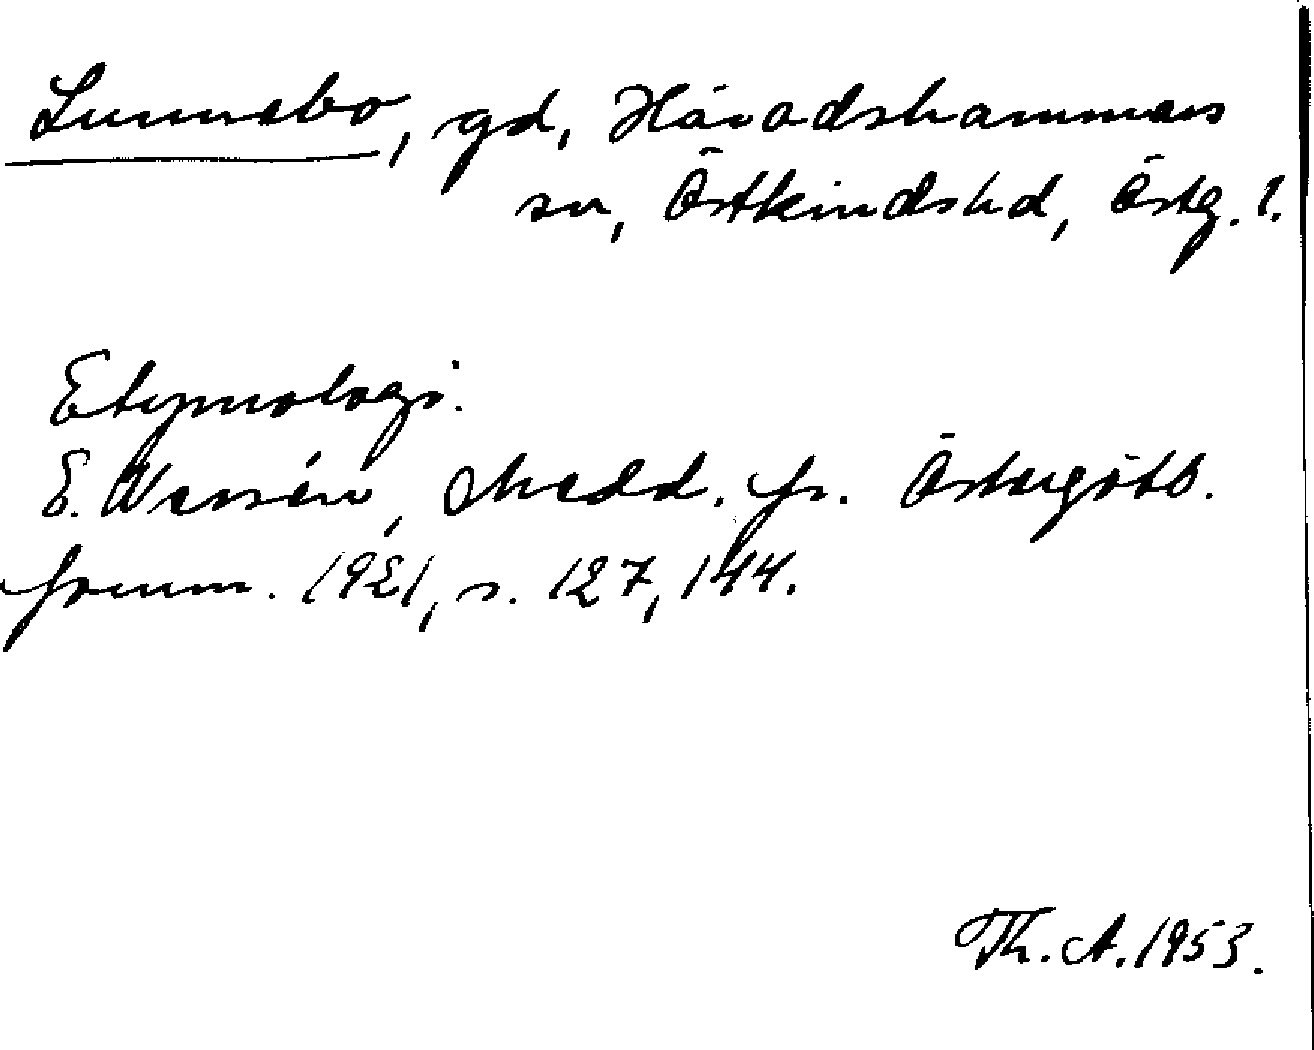 Lunnebo, gd, Häradshammars
sn, Östkinds hd, Östg. l.
Etymologi.
E. Wessén, Medd. fr. Östergötl.
fornm. 1921, s. 127, 144.
Th. A. 1953.